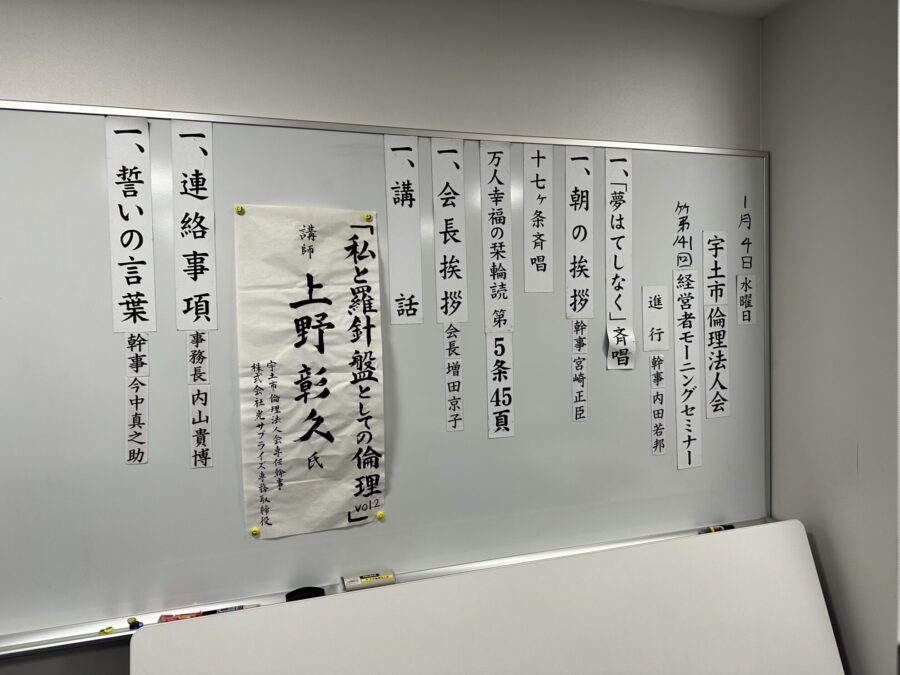 1月4日 水曜日
宇土市倫理法人会
第141回 経営者モーニングセミナー
進行 幹事 内田若邦
一、「夢はてしなく」斉唱
一、朝の挨拶 幹事 宮崎正臣
十七ヶ条斉唱
万人幸福の栞輪読 第5条45頁
一、会長挨拶 会長 増田京子
一、講話
「私と羅針盤としての倫理」vol.2
講師 上野彰久氏
宇土市倫理法人会専任幹事
株式会社光サプライズ専務取締役
一、連絡事項 事務長 内山貴博
一、誓いの言葉 幹事 今中真之助